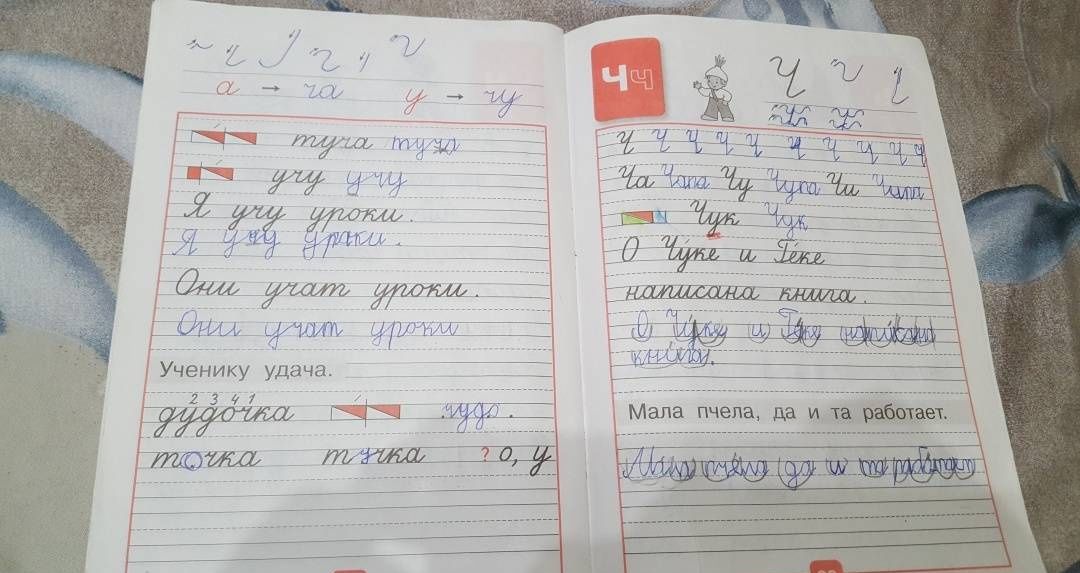 а → ча у → чу
туча туча
учу учу
Я учу уроки.
Я учу уроки.
Они учат уроки.
Они учат уроки
Ученику удача.
2 3 4 1
дудочка чудо.
точка тучка ? о, у
Ч ч
Ч Ч Ч Ч Ч Ч Ч Ч Ч Ч
Ча Чу Чи
Чук Чук
О Чу́ке и Ге́ке
написана книга.
О Чуке и Геке написана
книга.
Мала пчела, да и та работает.
Мала пчела да и та работает